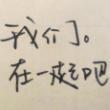 我们。
在一起吧